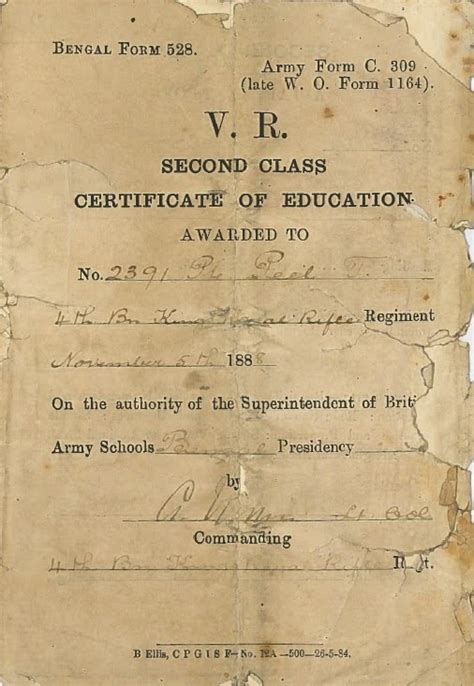 BENGAL FORM 528.
Army Form C. 309
(late W. O. Form 1164).
V. R.
SECOND CLASS
CERTIFICATE OF EDUCATION
AWARDED TO
No. 2391 Pte Peel T.
4th Bn King's Royal Rifle Regiment
November 5th 1888
On the authority of the Superintendent of Briti
Army Schools Bengal Presidency
by
Lt Col
Commanding
4th Bn King's Royal Rifle R t.
B Ellis, C P G I S F—No. 12A —500—26-5-84.